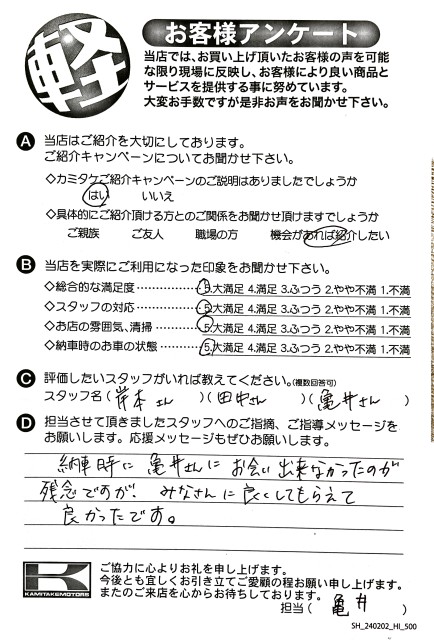 軽
お客様アンケート
当店では、お買い上げ頂いたお客様の声を可能
な限り現場に反映し、お客様により良い商品と
サービスを提供する事に努めています。
大変お手数ですが是非お声をお聞かせ下さい。
A 当店はご紹介を大切にしております。
ご紹介キャンペーンについてお聞かせ下さい。
◇カミタケご紹介キャンペーンのご説明はありましたでしょうか
はい いいえ
◇具体的にご紹介頂ける方とのご関係をお聞かせ頂けますでしょうか
ご親族 ご友人 職場の方 機会があれば紹介したい
B 当店を実際にご利用になった印象をお聞かせ下さい。
◇総合的な満足度……………5.大満足 4.満足 3.ふつう 2.やや不満 1.不満
◇スタッフの対応……………5.大満足 4.満足 3.ふつう 2.やや不満 1.不満
◇お店の雰囲気、清掃………5.大満足 4.満足 3.ふつう 2.やや不満 1.不満
◇納車時のお車の状態………5.大満足 4.満足 3.ふつう 2.やや不満 1.不満
C 評価したいスタッフがいれば教えてください。(複数回答可)
スタッフ名(岸本さん)(田中さん)(亀井さん)
D 担当させて頂きましたスタッフへのご指摘、ご指導メッセージを
お願いします。応援メッセージもぜひお願いします。
納車時に亀井さんにお会い出来なかったのが
残念ですが、みなさんに良くしてもらえて
良かったです。
KAMITAKEMOTORS
ご協力に心よりお礼を申し上げます。
今後とも宜しくお引き立てご愛顧の程お願い申し上げます。
またのご来店を心からお待ちしております。
担当(亀井)
SH_240202_HI_500